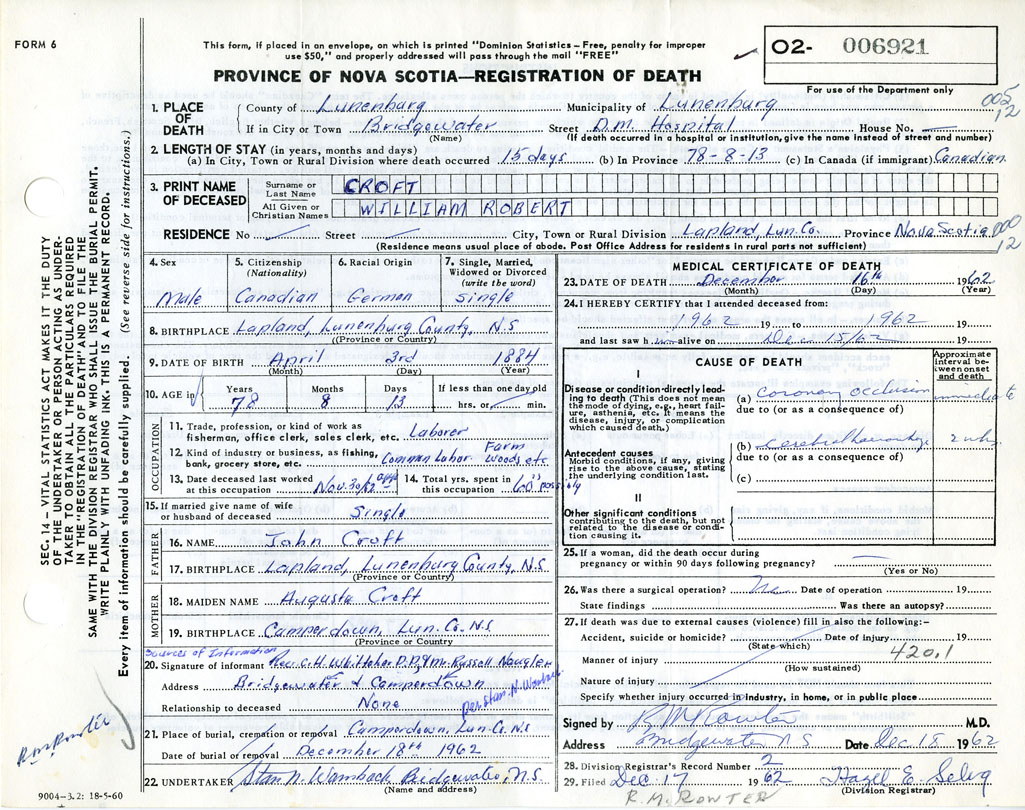 FORM 6
This form, if placed in an envelope, on which is printed "Dominion Statistics – Free, penalty for improper
use $50," and properly addressed will pass through the mail "FREE"
PROVINCE OF NOVA SCOTIA—REGISTRATION OF DEATH
O2- 006921
For use of the Department only
005
12
1. PLACE OF DEATH
County of Lunenburg Municipality of Lunenburg
If in City or Town Bridgewater Street D.M. Hospital House No.
(If death occurred in a hospital or institution, give the name instead of street and number)
2. LENGTH OF STAY (in years, months and days)
(a) In City, Town or Rural Division where death occurred 15 days (b) In Province 78-8-13 (c) In Canada (if immigrant) Canadian
3. PRINT NAME OF DECEASED
Surname or Last Name CROFT
All Given or Christian Names WILLIAM ROBERT
RESIDENCE No Street City, Town or Rural Division Lapland, Lun. Co. Province Nova Scotia
(Residence means usual place of abode. Post Office Address for residents in rural parts not sufficient)
000
12
4. Sex
Male
5. Citizenship
(Nationality)
Canadian
6. Racial Origin
German
7. Single, Married,
Widowed or Divorced
(write the word)
Single
8. BIRTHPLACE Lapland, Lunenburg County, N.S
(Province or Country)
9. DATE OF BIRTH April 3rd 1884
(Month) (Day) (Year)
10. AGE in Years 78 Months 8 Days 13 If less than one day old hrs. or min.
OCCUPATION
11. Trade, profession, or kind of work as
fisherman, office clerk, sales clerk, etc. Laborer
12. Kind of industry or business, as fishing,
bank, grocery store, etc. Common Labor Farm Woods etc
13. Date deceased last worked
at this occupation Nov. 30/62
14. Total yrs. spent in
this occupation 60
15. If married give name of wife
or husband of deceased Single
FATHER
16. NAME John Croft
17. BIRTHPLACE Lapland, Lunenburg County, N.S
(Province or Country)
MOTHER
18. MAIDEN NAME Augusta Croft
19. BIRTHPLACE Camperdown, Lun. Co. N.S
(Province or Country)
Sources of Information
20. Signature of informant Rev. G.H. Whittaker D.D. & Mr. Russell Naugler
Address Bridgewater & Camperdown
Relationship to deceased None
per Stan. N. Wambach
21. Place of burial, cremation or removal Camperdown, Lun. Co. N.S
Date of burial or removal December 18th 1962
22. UNDERTAKER Stan N. Wambach Bridgewater, N.S.
(Name and address)
9004-3.2: 18-5-60
SEC. 14 – VITAL STATISTICS ACT MAKES IT THE DUTY
OF THE UNDERTAKER OR PERSON ACTING AS UNDER-
TAKER TO OBTAIN ALL THE PARTICULARS REQUIRED
IN THE "REGISTRATION OF DEATH" AND TO FILE THE
SAME WITH THE DIVISION REGISTRAR WHO SHALL ISSUE THE BURIAL PERMIT.
WRITE PLAINLY WITH UNFADING INK. THIS IS A PERMANENT RECORD.
Every item of information should be carefully supplied. (See reverse side for instructions.)
RM Rowter
MEDICAL CERTIFICATE OF DEATH
23. DATE OF DEATH December 16th 1962
(Month) (Day) (Year)
24. I HEREBY CERTIFY that I attended deceased from:
1962 19 to 1962 19
and last saw h im alive on Dec 15/62 19
CAUSE OF DEATH
Approximate interval between onset and death
I
Disease or condition directly leading to death (This does not mean
the mode of dying, e.g., heart failure, asthenia, etc. It means the
disease, injury, or complication
which caused death.)
(a) coronary occlusion immediate
due to (or as a consequence of)
Antecedent causes
Morbid conditions, if any, giving
rise to the above cause, stating
the underlying condition last.
(b) Cerebral hemorrhage 2 wks.
due to (or as a consequence of)
(c)
II
Other significant conditions
contributing to the death, but not
related to the disease or condition causing it.
25. If a woman, did the death occur during
pregnancy or within 90 days following pregnancy?
(Yes or No)
26. Was there a surgical operation? No Date of operation 19
State findings Was there an autopsy?
27. If death was due to external causes (violence) fill in also the following:-
Accident, suicide or homicide? Date of injury 19
(State which)
420.1
Manner of injury
(How sustained)
Nature of injury
Specify whether injury occurred in industry, in home, or in public place
Signed by RM Rowter M.D.
Address Bridgewater N S Date Dec 18 1962
28. Division Registrar's Record Number 2
29. Filed Dec. 17 1962 Hazel E. Selig
(Division Registrar)
R. M. ROWTER